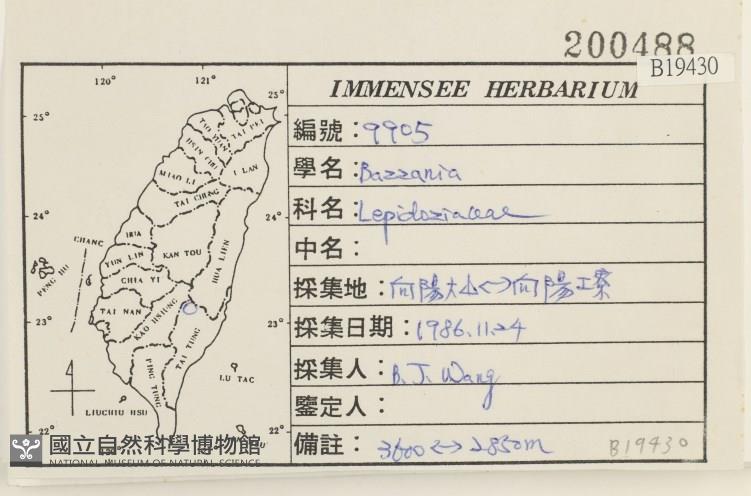 200488
B19430
IMMENSEE HERBARIUM
編號：9905
學名：Bazzania
科名：Lepidoziaceae
中名：
採集地：向陽大山<->向陽工寮
採集日期：1986.11.24
採集人：B.J. Wang
鑒定人：
備註：3600<->2850m
B19430
120°
121°
25°
25°
TAI PEI
I LAN
MIAO LI
TAI CHUNG
24°
24°
CHANG
HUA
YUN LIN
KAN TOU
HUA LIEN
PENG HU
CHIA YI
TAI NAN
KAO HSIUNG
23°
23°
TAI TUNG
PING TUNG
LU TAC
LIUCHIU HSU
22°
22°
國立自然科學博物館
NATIONAL MUSEUM OF NATURAL SCIENCE